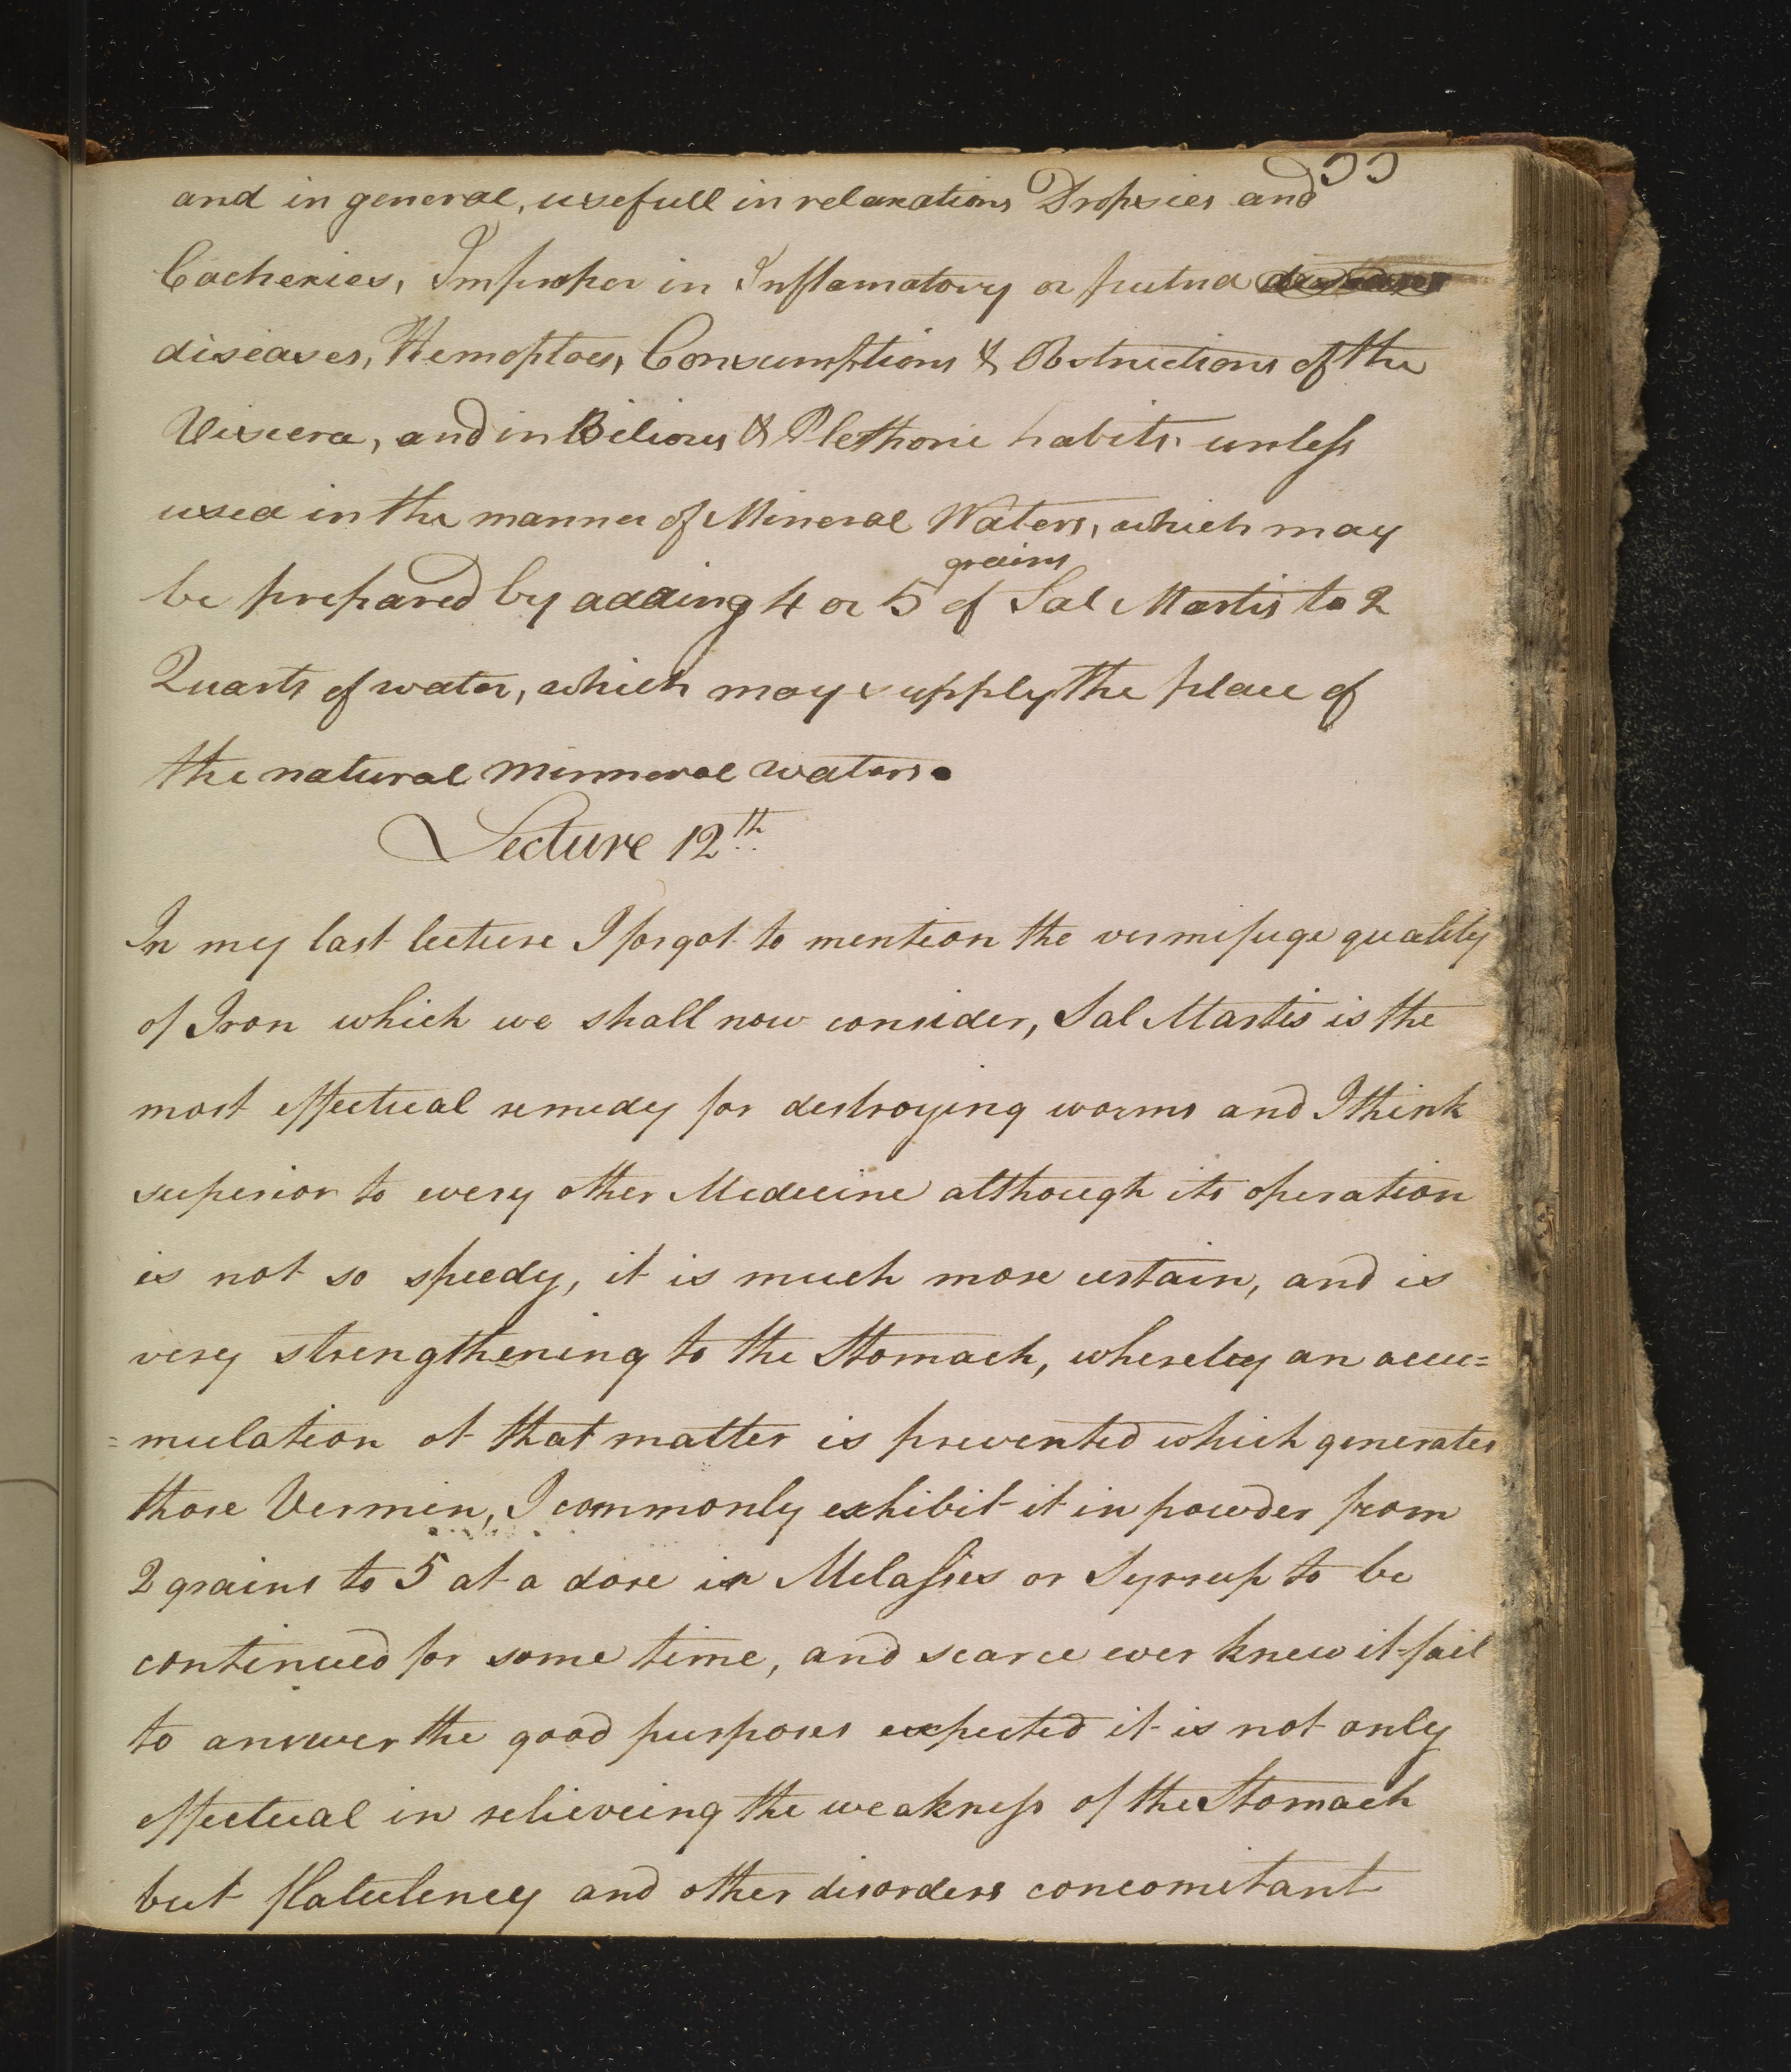 55
and in general, usefull in relaxations Dropsies and
Cachexies, Improper in Inflamatory or putrid
diseases, Hemoptoes, Consumptions & Obstructions of the
Viscera, and in Bilious & Plethoric habits, unless
used in the manner of Mineral Waters, which may
grains
be prepared by adding 4 or 5 of Sal Martis to 2
Quarts of water, which may supply the place of
the natural minneral waters.
Lecture 12th
In my last lecture I forgot to mention the vermifuge quality
of Iron which we shall now consider, Sal Martis is the
most effectual remedy for destroying worms and I think
superior to every other Medicine although its operation
is not so speedy, it is much more certain, and is
very strengthening to the Stomach, whereby an accu=
=mulation of that matter is prevented which generates
those Vermin, I commonly exhibit it in powder from
2 grains to 5 at a dose in Melasses or Syrrup to be
continued for some time, and scarce ever knew it fail
to answer the good purposes expected it is not only
effectual in relieveing the weakness of the Stomach
but flatulency and other disorders concomitant